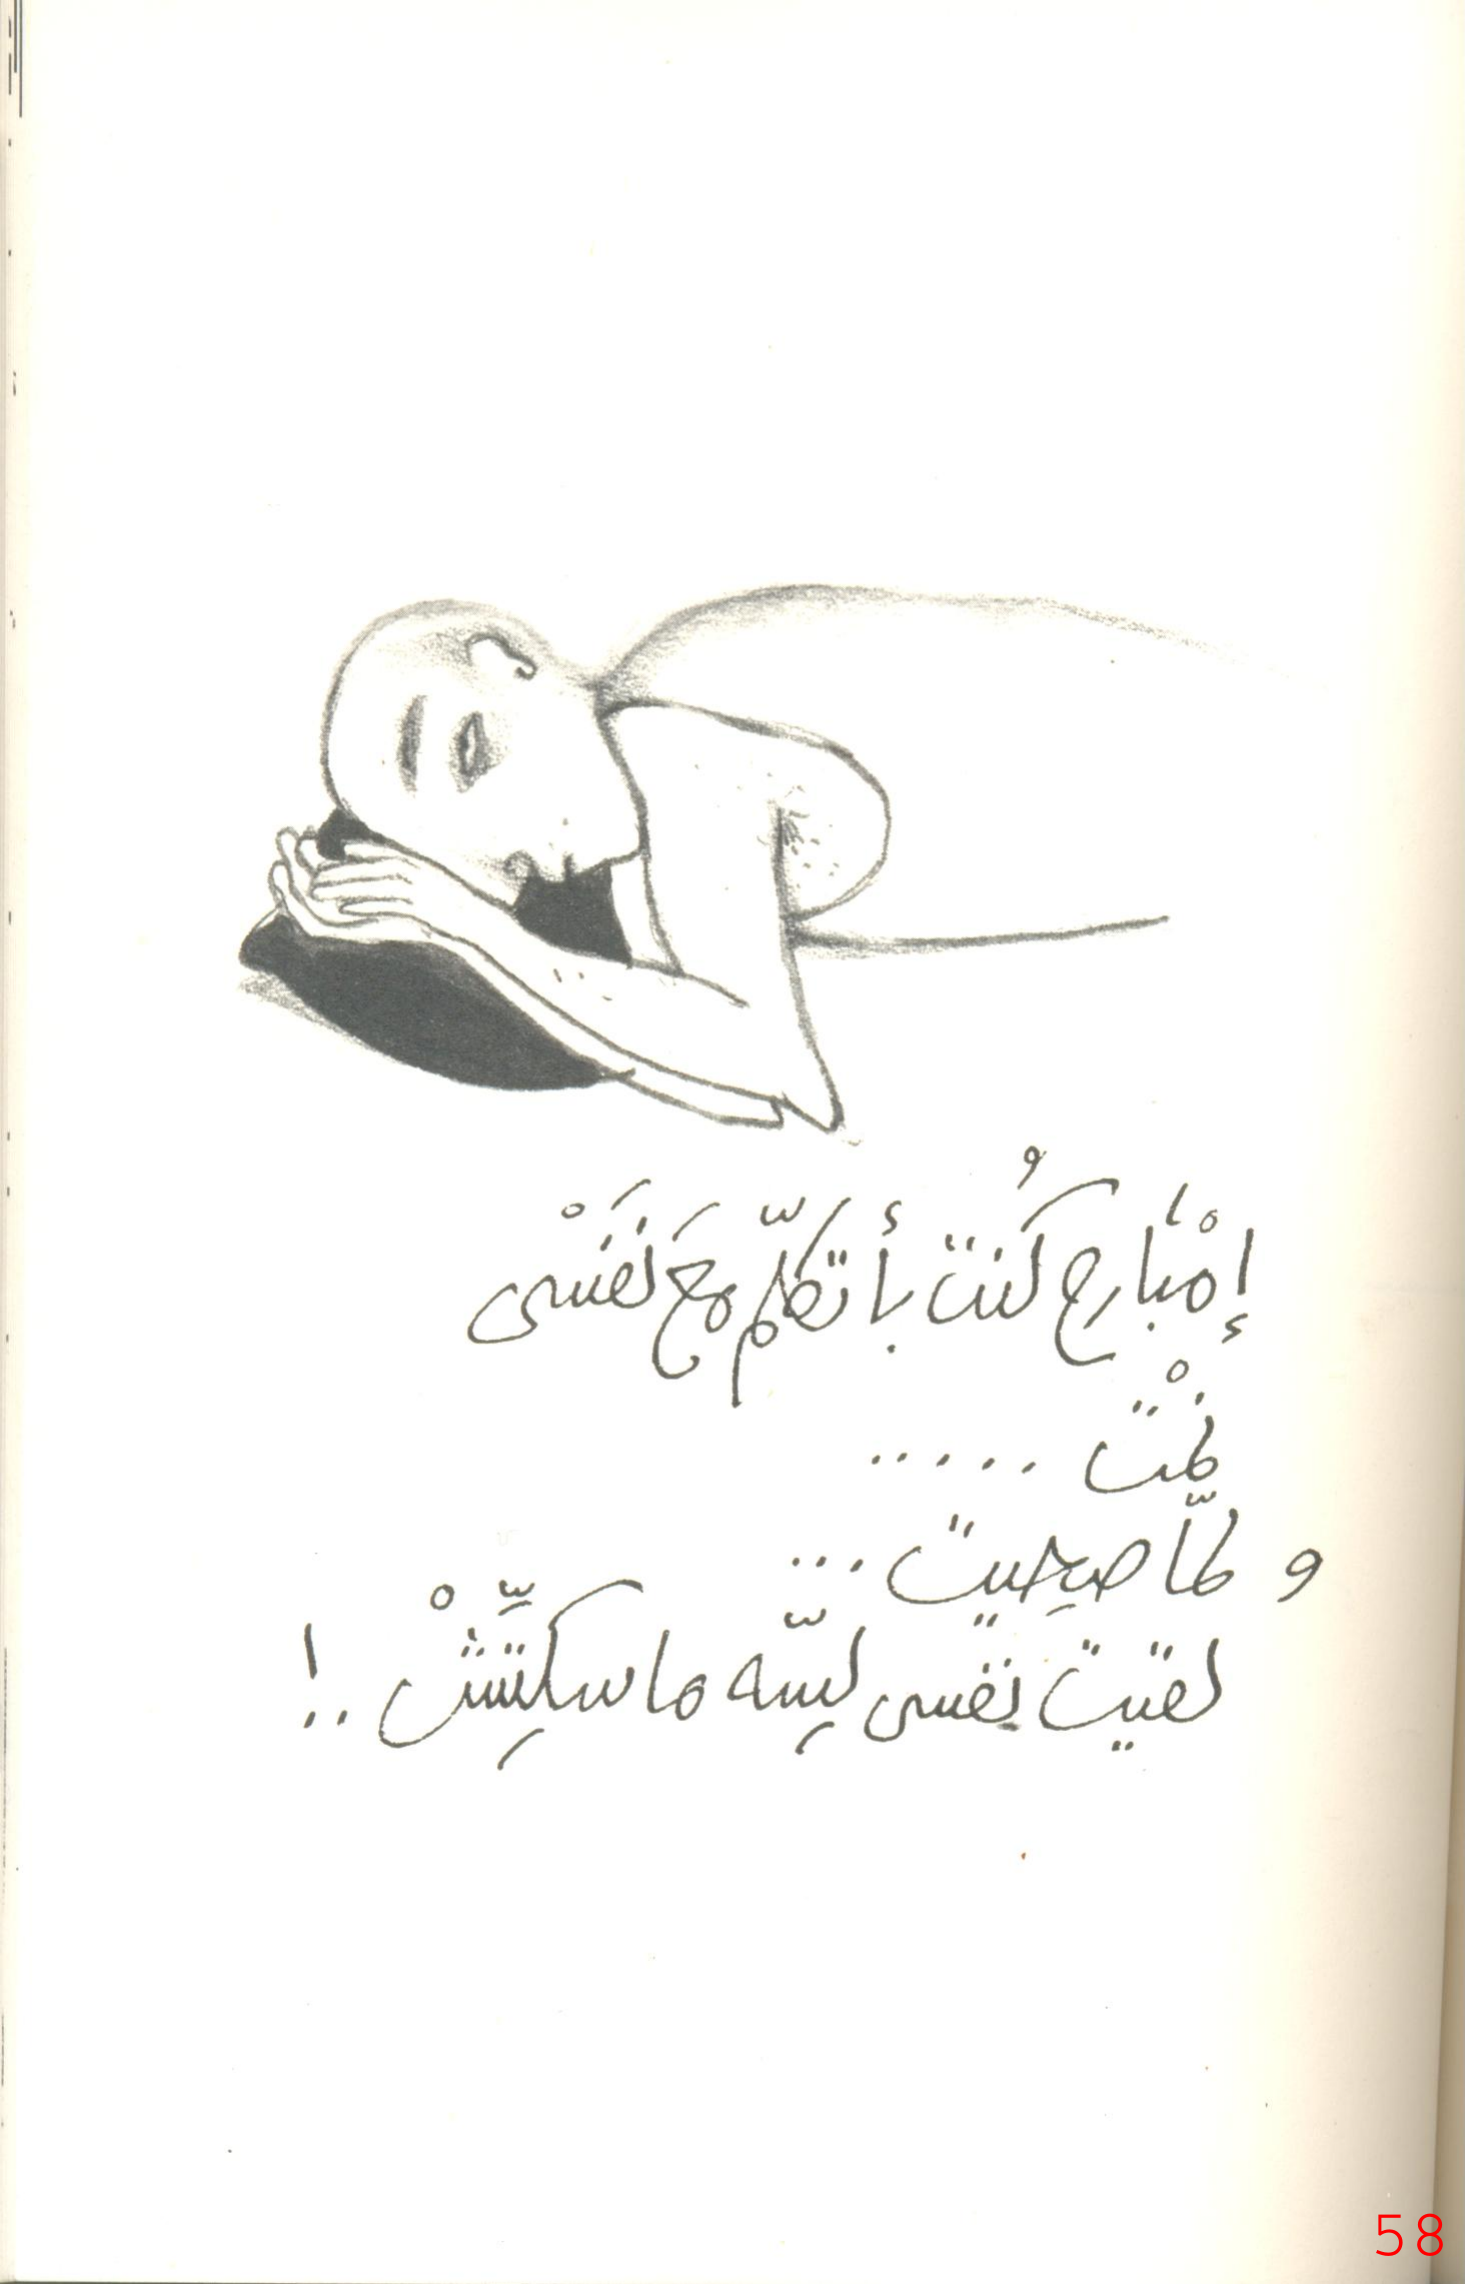 إمْبَارح كُنت بأتكلّم مَعَ نَفَسْى
نمْت .....
و لمّا صِحيت ...
لقيت نفسى لِسّه ما سكِتِّشْ ..!
58